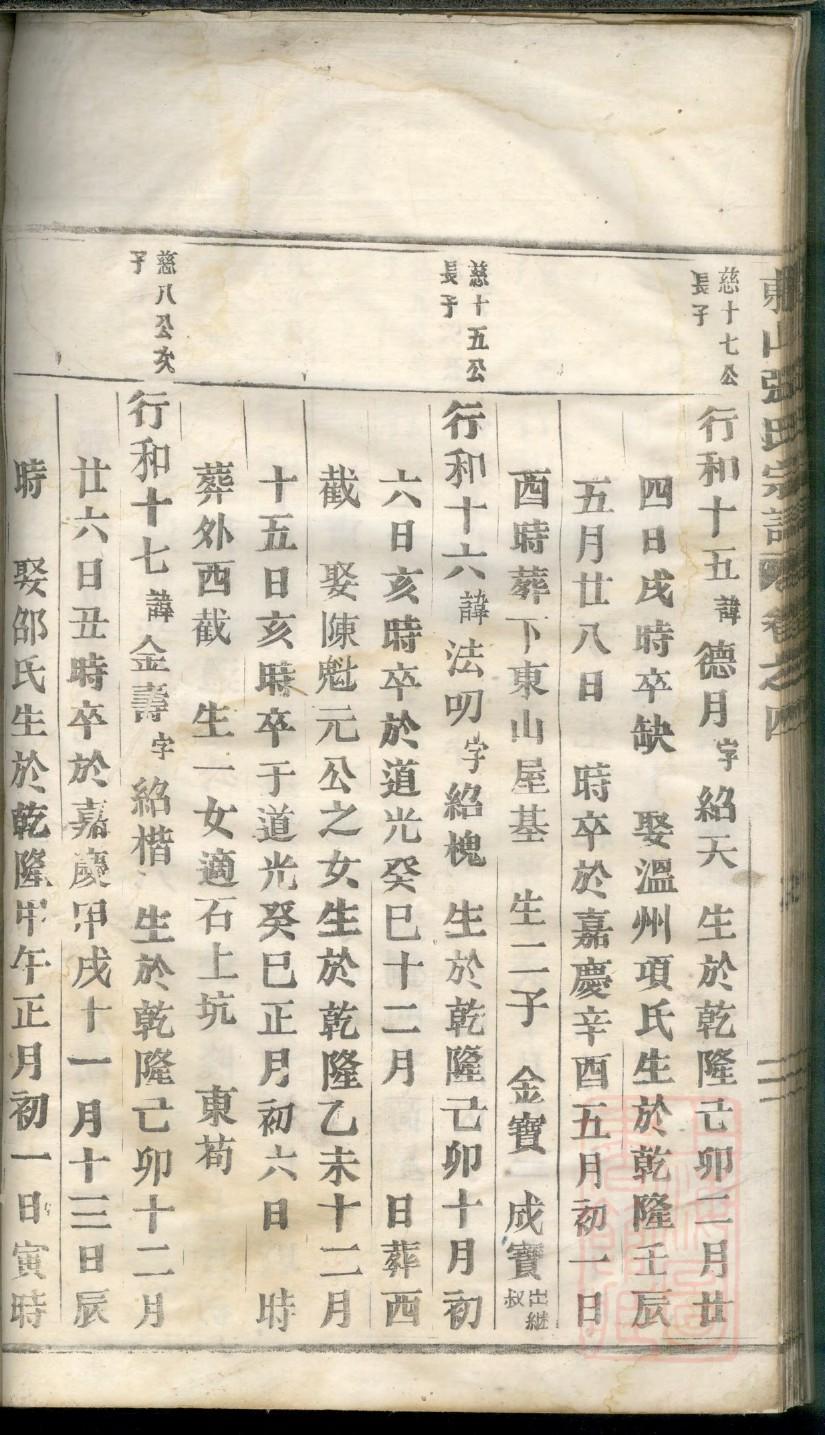 東山張氏宗譜 卷之四
慈十七公
長子
行和十五諱德月字紹天 生於乾隆己卯二月廿
四日戌時卒缺 娶溫州項氏生於乾隆壬辰
五月廿八日 時卒於嘉慶辛酉五月初一日
酉時葬下東山屋基 生二子 金寶 成寶出繼叔
慈十五公
長子
行和十六諱法叨字紹槐 生於乾隆己卯十月初
六日亥時卒於道光癸巳十二月 日葬西
截 娶陳魁元公之女生於乾隆乙未十二月
十五日亥時卒于道光癸巳正月初六日 時
葬外西截 生一女適石上坑 東荀
慈八公次
子
行和十七諱金壽字紹楷 生於乾隆己卯十二月
廿六日丑時卒於嘉慶甲戌十一月十三日辰
時 娶邵氏生於乾隆甲午正月初一日寅時